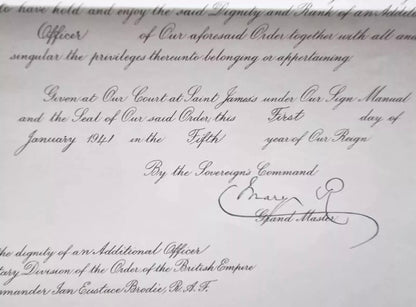 to have hold and enjoy the said Dignity and Rank of an Additional
Officer of Our aforesaid Order together with all and
singular the privileges thereunto belonging or appertaining
Given at Our Court at Saint James's under Our Sign Manual
and the Seal of Our said Order this First day of
January 1941 in the Fifth year of Our Reign
By the Sovereign's Command
Mary R
Grand Master
the dignity of an Additional Officer
tary Division of the Order of the British Empire
mmander Ian Eustace Brodie, R.A.F.